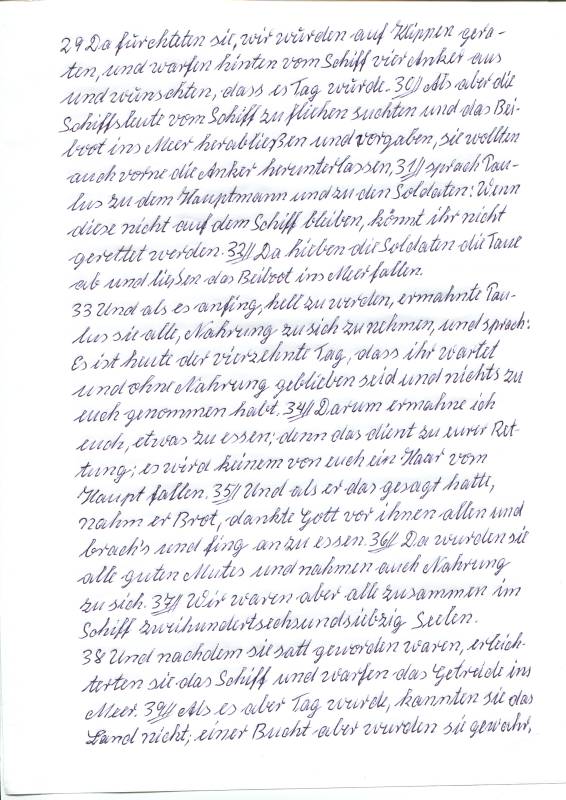 29 Da fürchteten sie, wir würden auf Klippen gera-
ten, und warfen hinten vom Schiff vier Anker aus
und wünschten, dass es Tag würde. 30// Als aber die
Schiffsleute vom Schiff zu fliehen suchten und das Bei-
boot ins Meer herabließen und vorgaben, sie wollten
auch vorne die Anker herunterlassen, 31// sprach Pau-
lus zu dem Hauptmann und zu den Soldaten: Wenn
diese nicht auf dem Schiff bleiben, könnt ihr nicht
gerettet werden. 32// Da hieben die Soldaten die Taue
ab und ließen das Beiboot ins Meer fallen.
33 Und als es anfing, hell zu werden, ermahnte Pau-
lus sie alle, Nahrung zu sich zu nehmen, und sprach:
Es ist heute der vierzehnte Tag, dass ihr wartet
und ohne Nahrung geblieben seid und nichts zu
euch genommen habt. 34// Darum ermahne ich
euch, etwas zu essen; denn das dient zu eurer Ret-
tung; es wird keinem von euch ein Haar vom
Haupt fallen. 35// Und als er das gesagt hatte,
nahm er Brot, dankte Gott vor ihnen allen und
brach's und fing an zu essen. 36// Da wurden sie
alle guten Mutes und nahmen auch Nahrung
zu sich. 37// Wir waren aber alle zusammen im
Schiff zweihundertsechsundsiebzig Seelen.
38 Und nachdem sie satt geworden waren, erleich-
terten sie das Schiff und warfen das Getreide ins
Meer. 39// Als es aber Tag wurde, kannten sie das
Land nicht; einer Bucht aber wurden sie gewahr,